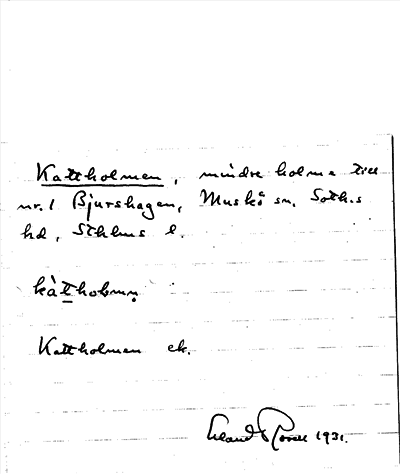 Kattholmen, mindre holme till
nr. 1 Bjurshagen, Muskö sn, Soth.s
hd, Sthlms l.
kàt̲tholmn̥
Kattholmen ek.
Roland Otterbjörk 1931.